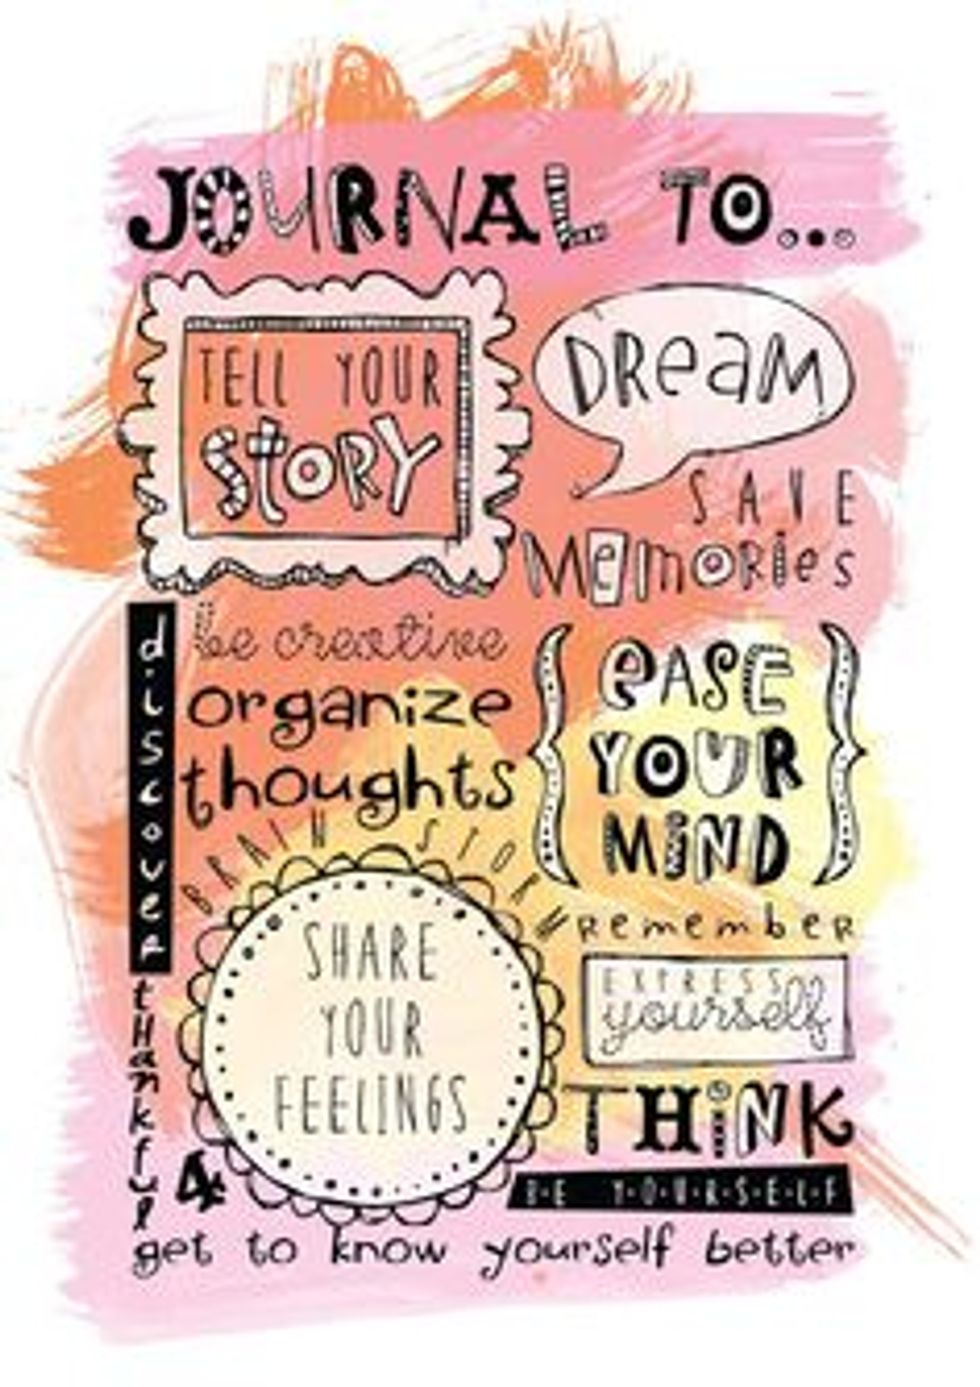 JOURNAL TO...
TELL YOUR
STORY
DREAM
SAVE
MEMORIES
discover
be creative
organize
thoughts
EASE
YOUR
MIND
BRAIN STORM
SHARE
YOUR
FEELINGS
remember
EXPRESS
yourself
THINK
BE Y•O•U•R•S•E•L•F
tHankful 4
get to know yourself better